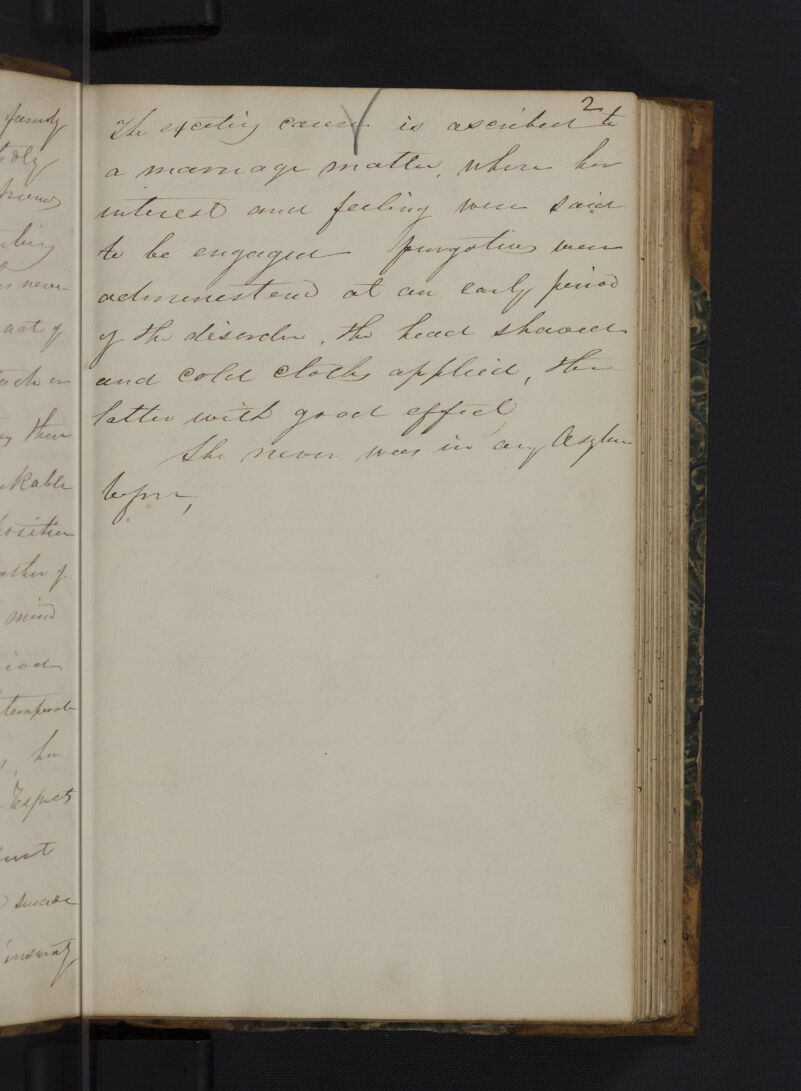 family
never
act of
kable
mind
temperate
her
respect
suicide
insanity
2
The exciting cause is ascribed to
a marriage matter, where her
interest and feeling were said
to be engaged purgatives were
administered at an early period
of the disorder, the head shaved
and cold cloths applied, the
latter with good effect
She never was in any Asylum
before,